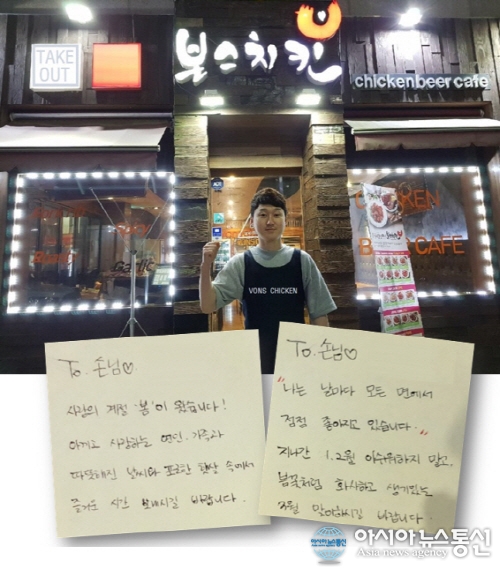 TAKE
OUT
본스치킨
chickenbeercafe
CHICKEN
BEER CAFE
Garlic
VONS CHICKEN
To. 손님♡
사랑의 계절 '봄'이 왔습니다!
아끼고 사랑하는 연인·가족과
따뜻해진 날씨와 포근한 햇살 속에서
즐거운 시간 보내시길 바랍니다.
To. 손님♡
"나는 날마다 모든 면에서
점점 좋아지고 있습니다."
지나간 1, 2월 아쉬워하지 말고,
봄꽃처럼 화사하고 생기있는
3월 맞이하시길 바랍니다.
아시아뉴스통신
Asia news agency